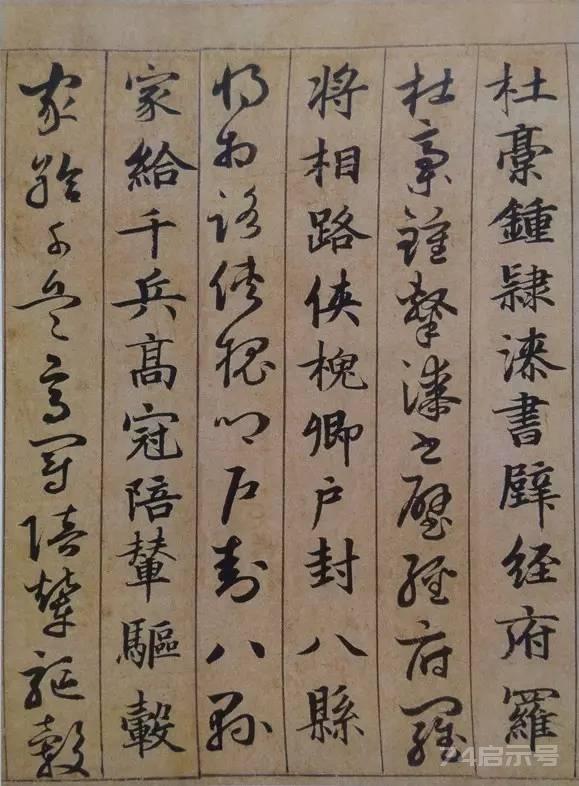 杜藁鍾隸漆書壁経府羅
杜藁鍾隸漆書壁経府羅
将相路侠槐卿户封八縣
将相路侠槐卿户封八縣
家給千兵高冠陪輦驅轂
家給千兵高冠陪輦驅轂
74启示号